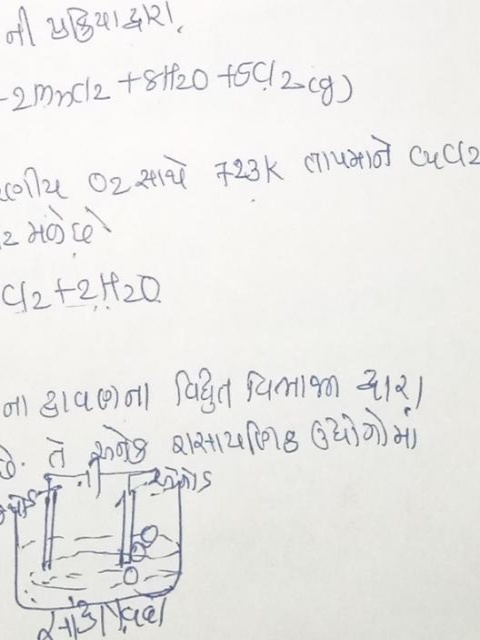 ની પ્રક્રિયા દ્વારા.
2MnCl2 + 8H2O + 5Cl2(g)
O2 સાથે 723K તાપમાને CuCl2
2 મળે છે
Cl2 + 2H2O
ના દ્રાવણના વિદ્યુત વિભાજન દ્વારા
છે. તે અનેક રાસાયણિક ઉદ્યોગોમાં
એનોડ